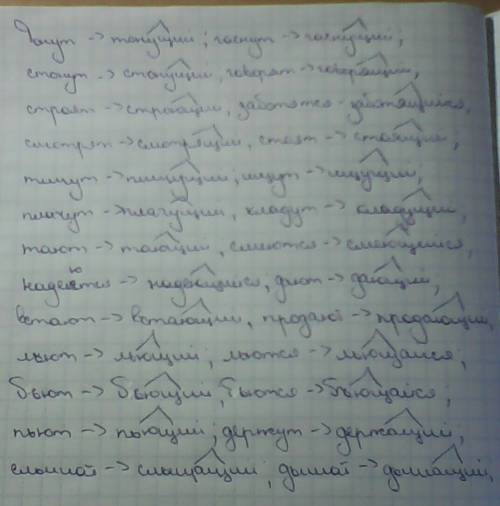 тонут -> тонущий; гаснут -> гаснущий;
стонут -> стонущий, говорят -> говорящий,
строят -> строящий, заботятся - заботящийся,
смотрят -> смотрящий, стоят -> стоящий,
пишут -> пишущий; ищут -> ищущий;
плачут -> плачущий, кладут -> кладущий,
тают -> тающий, смеются -> смеющийся,
надеются -> надеющийся, дают -> дающий,
встают -> встающий, продают -> продающий
льют -> льющий, льются -> льющийся;
бьют -> бьющий, бьются -> бьющийся;
пьют -> пьющий; держут -> держащий,
слышат -> слышащий; дышат -> дышащий,